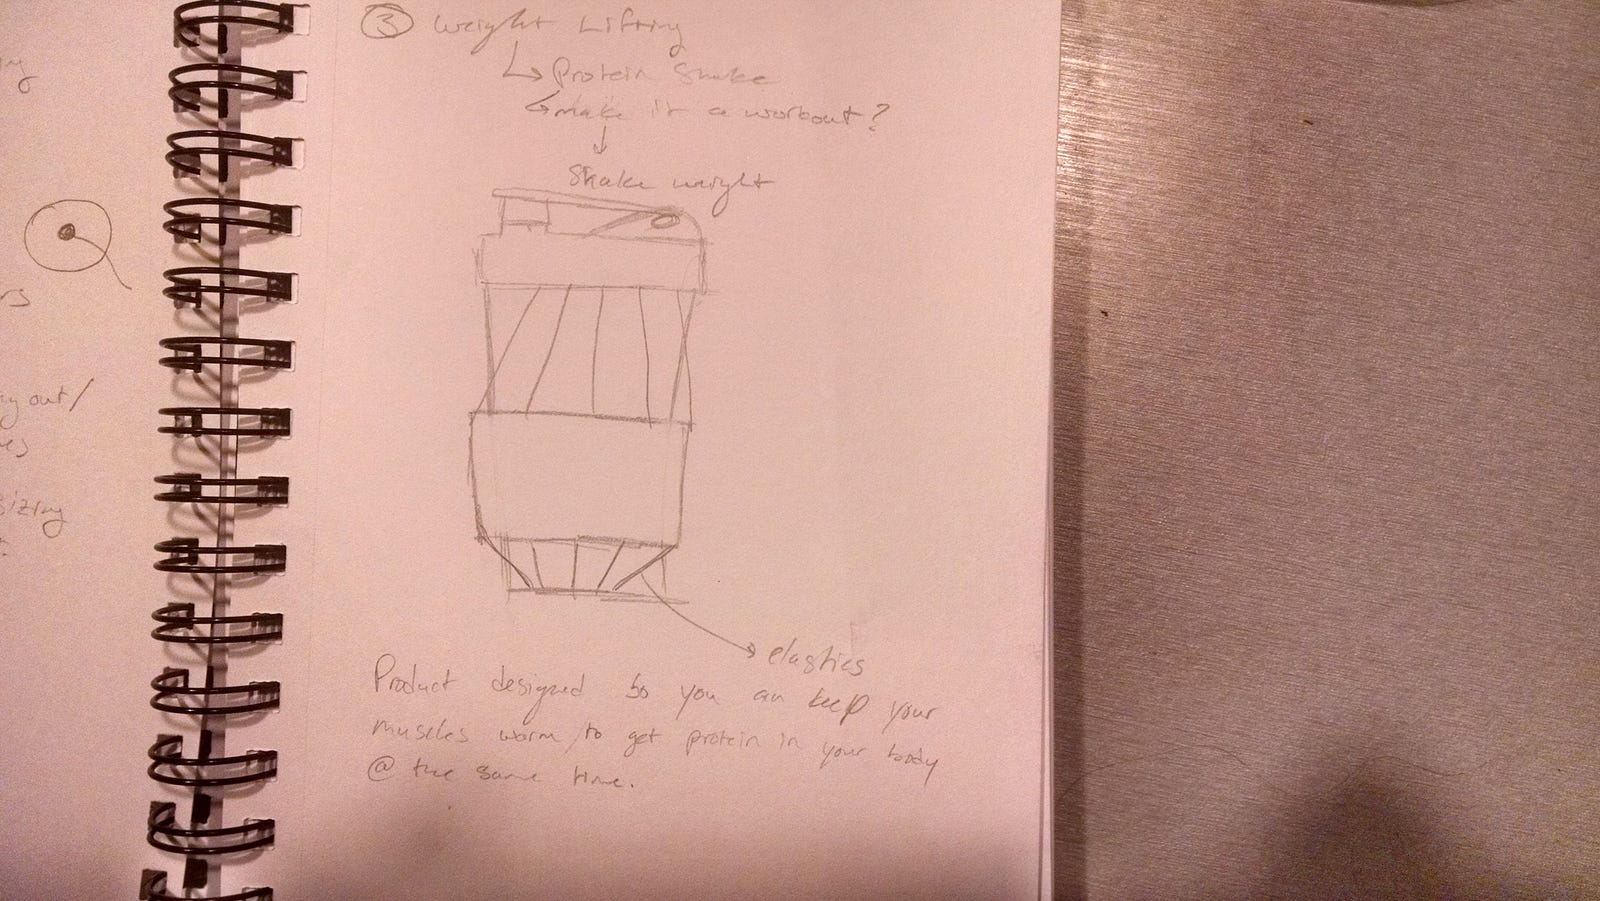 ③ Weight Lifting
↳ Protein Shake
↳ make it a workout?
↓
Shake weight
elastics
Product designed so you can keep your
muscles warm / to get protein in your body
@ the same time.
rs
out/
sizing